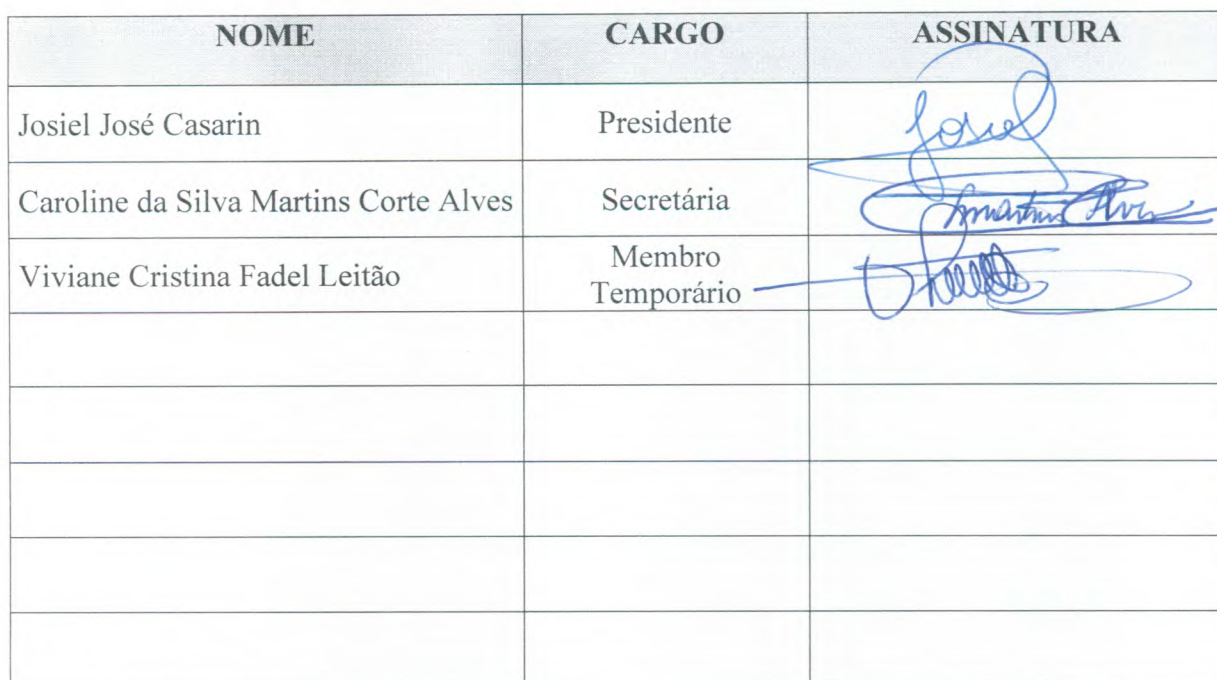 NOME CARGO ASSINATURA
Josiel José Casarin Presidente Josiel
Caroline da Silva Martins Corte Alves Secretária Smartins Alves
Viviane Cristina Fadel Leitão Membro
Temporário